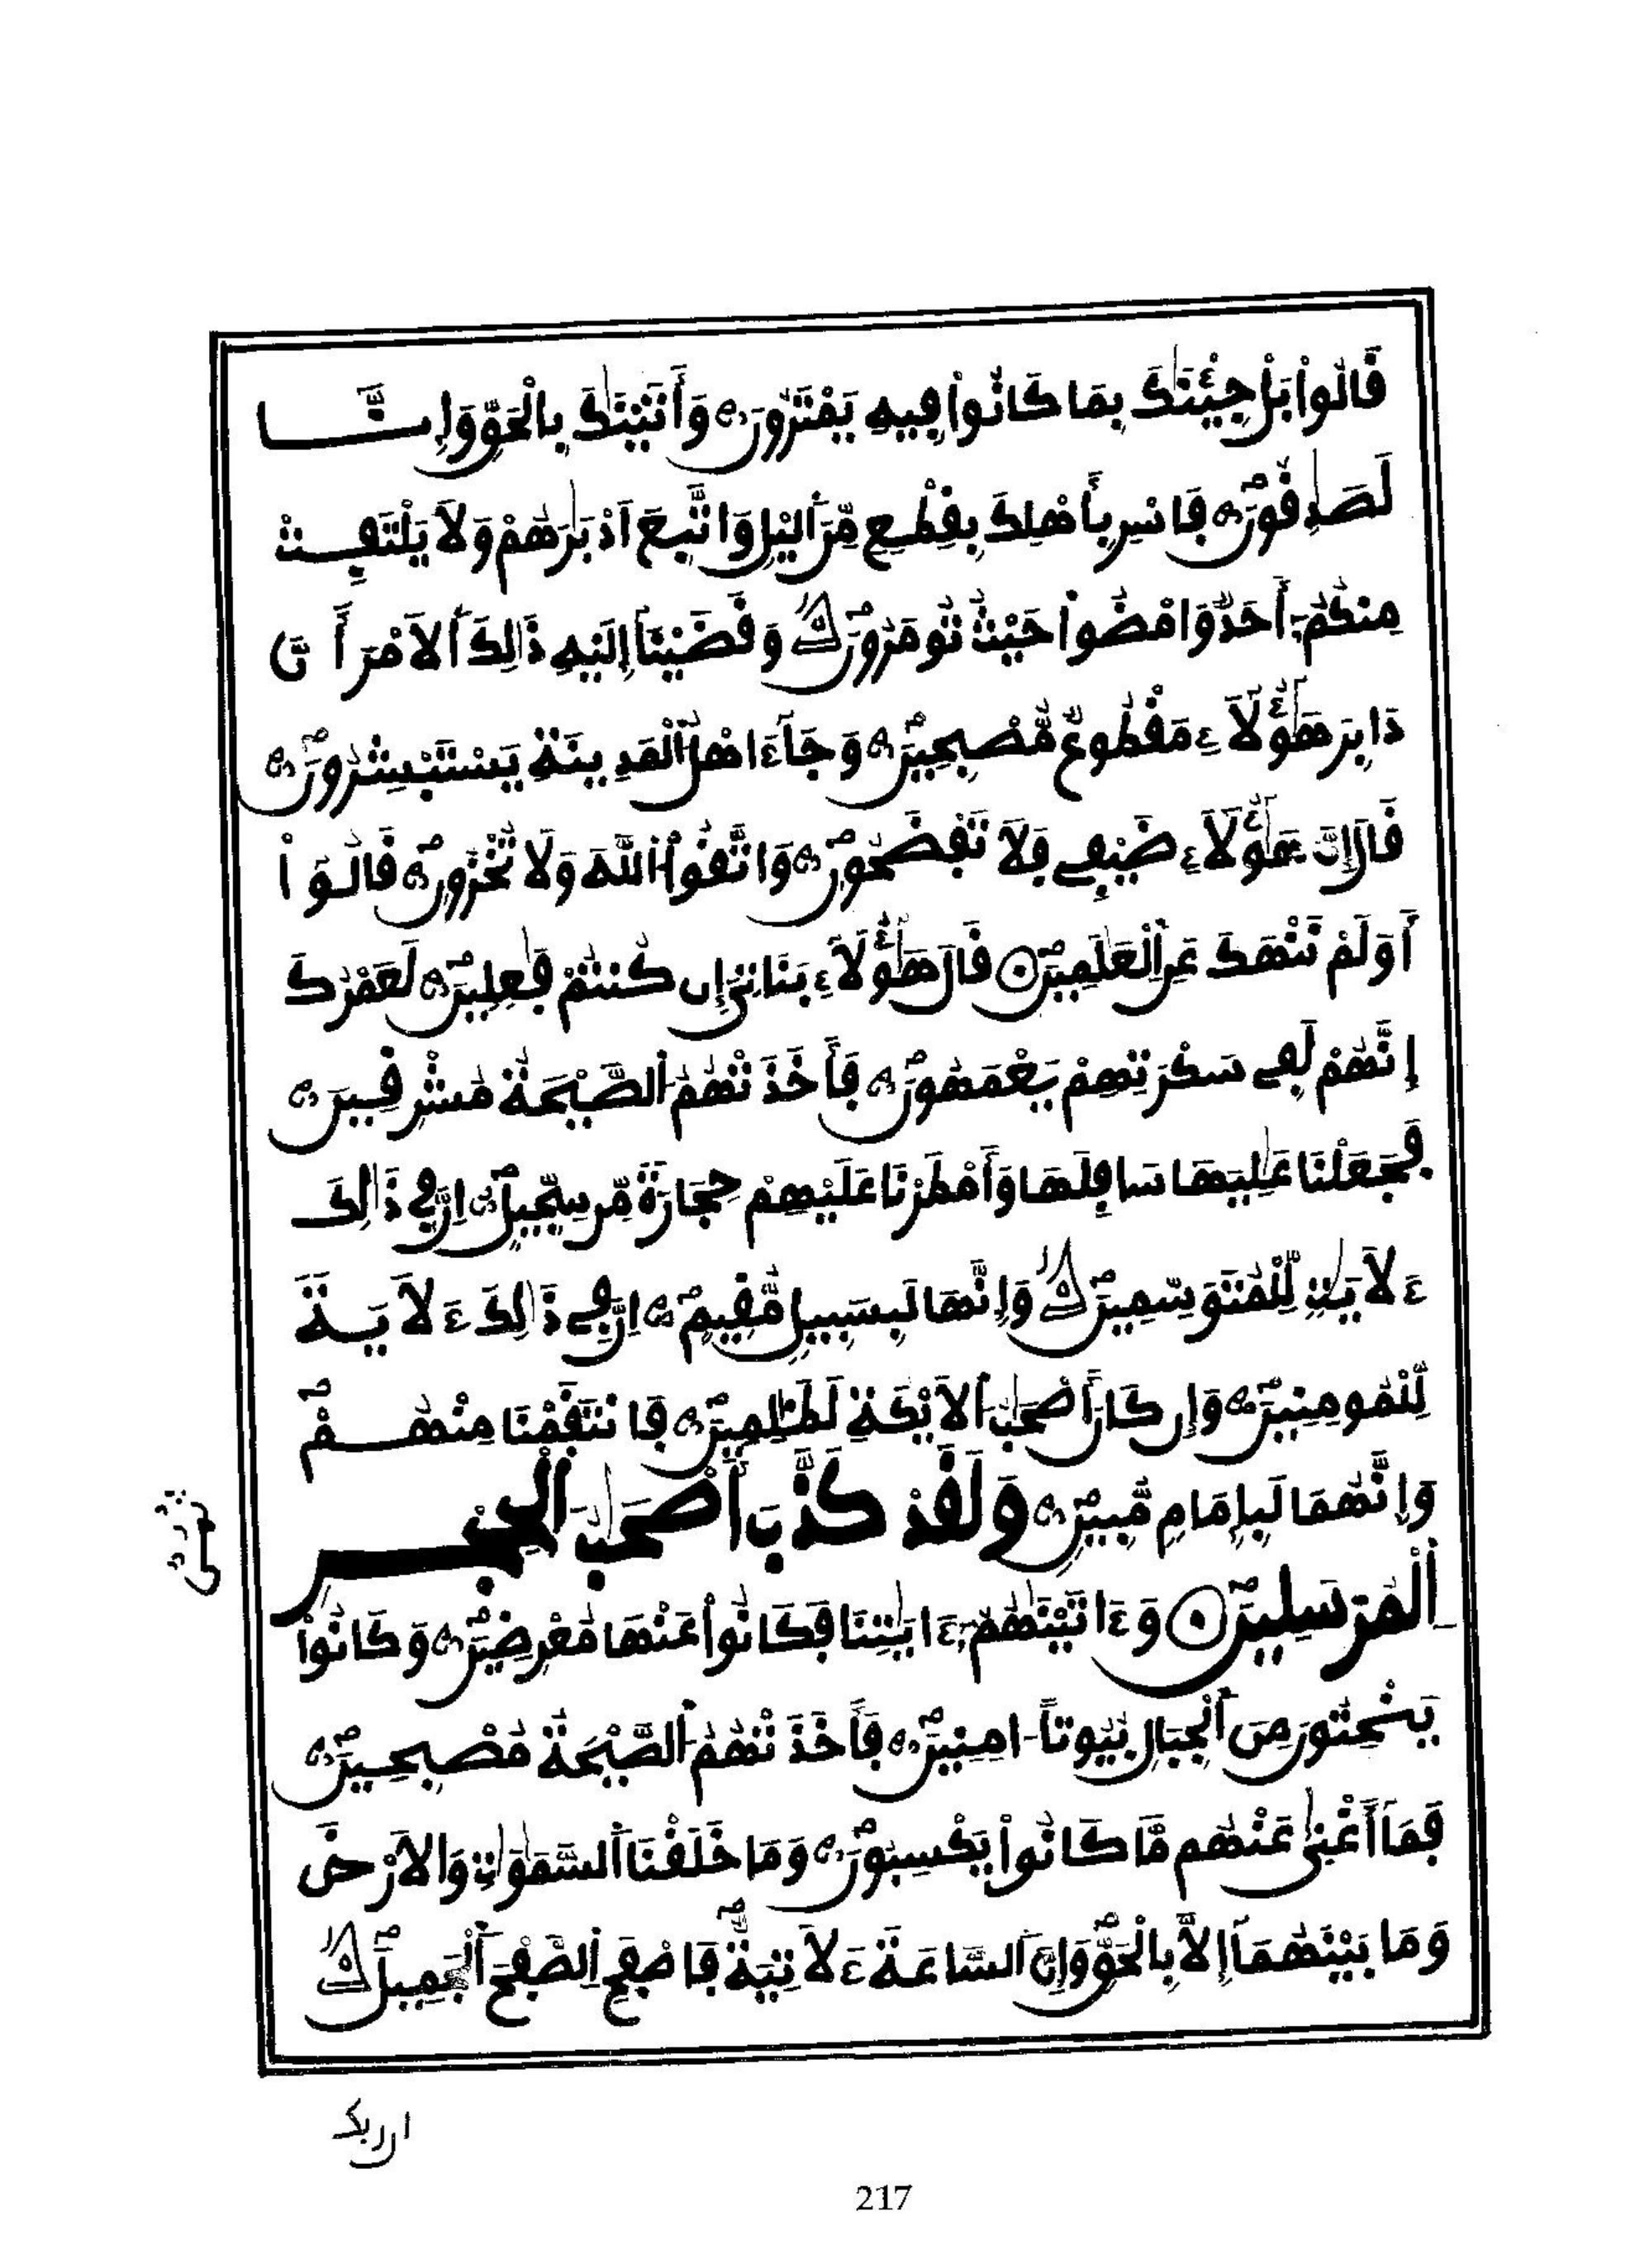 قَالُواْ بَلْ جِئْنَٰكَ بِمَا كَانُواْ فِيهِ يَمْتَرُونَ وَأَتَيْنَٰكَ بِالْحَقِّ وَإِنَّا
لَصَٰدِقُونَ فَاسْرِ بِأَهْلِكَ بِقِطْعٍ مِّنَ أَلَيْلِ وَاتَّبِعَ اَدْبَٰرَهُمْ وَلَا يَلْتَفِتْ
مِنكُمُ أَحَدٌ وَامْضُواْ حَيْثُ تُومَرُونَ وَقَضَيْنَا إِلَيْهِ ذَٰلِكَ أَلَامْرَ أَنَّ
دَابِرَ هَٰؤُلَاءِ مَقْطُوعٌ مُّصْبِحِينَ وَجَاءَ اهْلُ الْمَدِينَةِ يَسْتَبْشِرُونَ
قَالَ إِنَّ هَٰؤُلَاءِ ضَيْفِي فَلَا تَفْضَحُونِ وَاتَّقُواْ اللَّهَ وَلَا تُخْزُونِ قَالُواْ
أَوَلَمْ نَنْهَكَ عَنِ الْعَٰلَمِينَ قَالَ هَٰؤُلَاءِ بَنَاتِيَ إِن كُنتُمْ فَٰعِلِينَ لَعَمْرُكَ
إِنَّهُمْ لَفِي سَكْرَتِهِمْ يَعْمَهُونَ فَأَخَذَتْهُمُ الصَّيْحَةُ مُشْرِقِينَ
فَجَعَلْنَا عَٰلِيَهَا سَافِلَهَا وَأَمْطَرْنَا عَلَيْهِمْ حِجَارَةً مِّن سِجِّيلٍ اِنَّ فِي ذَٰلِكَ
ءَلَايَٰتٍ لِّلْمُتَوَسِّمِينَ وَإِنَّهَا لَبِسَبِيلٍ مُّقِيمٍ اِنَّ فِي ذَٰلِكَ ءَلَايَةً
لِّلْمُومِنِينَ وَإِن كَانَ أَصْحَٰبُ الَايْكَةِ لَظَٰلِمِينَ فَانتَقَمْنَا مِنْهُمْ
وَإِنَّهُمَا لَبِإِمَامٍ مُّبِينٍ وَلَقَدْ كَذَّبَ أَصْحَٰبُ الْحِجْرِ
الْمُرْسَلِينَ وَءَاتَيْنَٰهُمُ ءَايَٰتِنَا فَكَانُواْ عَنْهَا مُعْرِضِينَ وَكَانُواْ
يَنْحِتُونَ مِنَ الْجِبَالِ بُيُوتاً اٰمِنِينَ فَأَخَذَتْهُمُ الصَّيْحَةُ مُصْبِحِينَ
فَمَا أَغْنَىٰ عَنْهُم مَّا كَانُواْ يَكْسِبُونَ وَمَا خَلَقْنَا السَّمَٰوَٰتِ وَالَارْضَ
وَمَا بَيْنَهُمَا إِلَّا بِالْحَقِّ وَإِنَّ السَّاعَةَ ءَلَاتِيَةٌ فَاصْفَحِ الصَّفْحَ الْجَمِيلَ
ان ربك
217